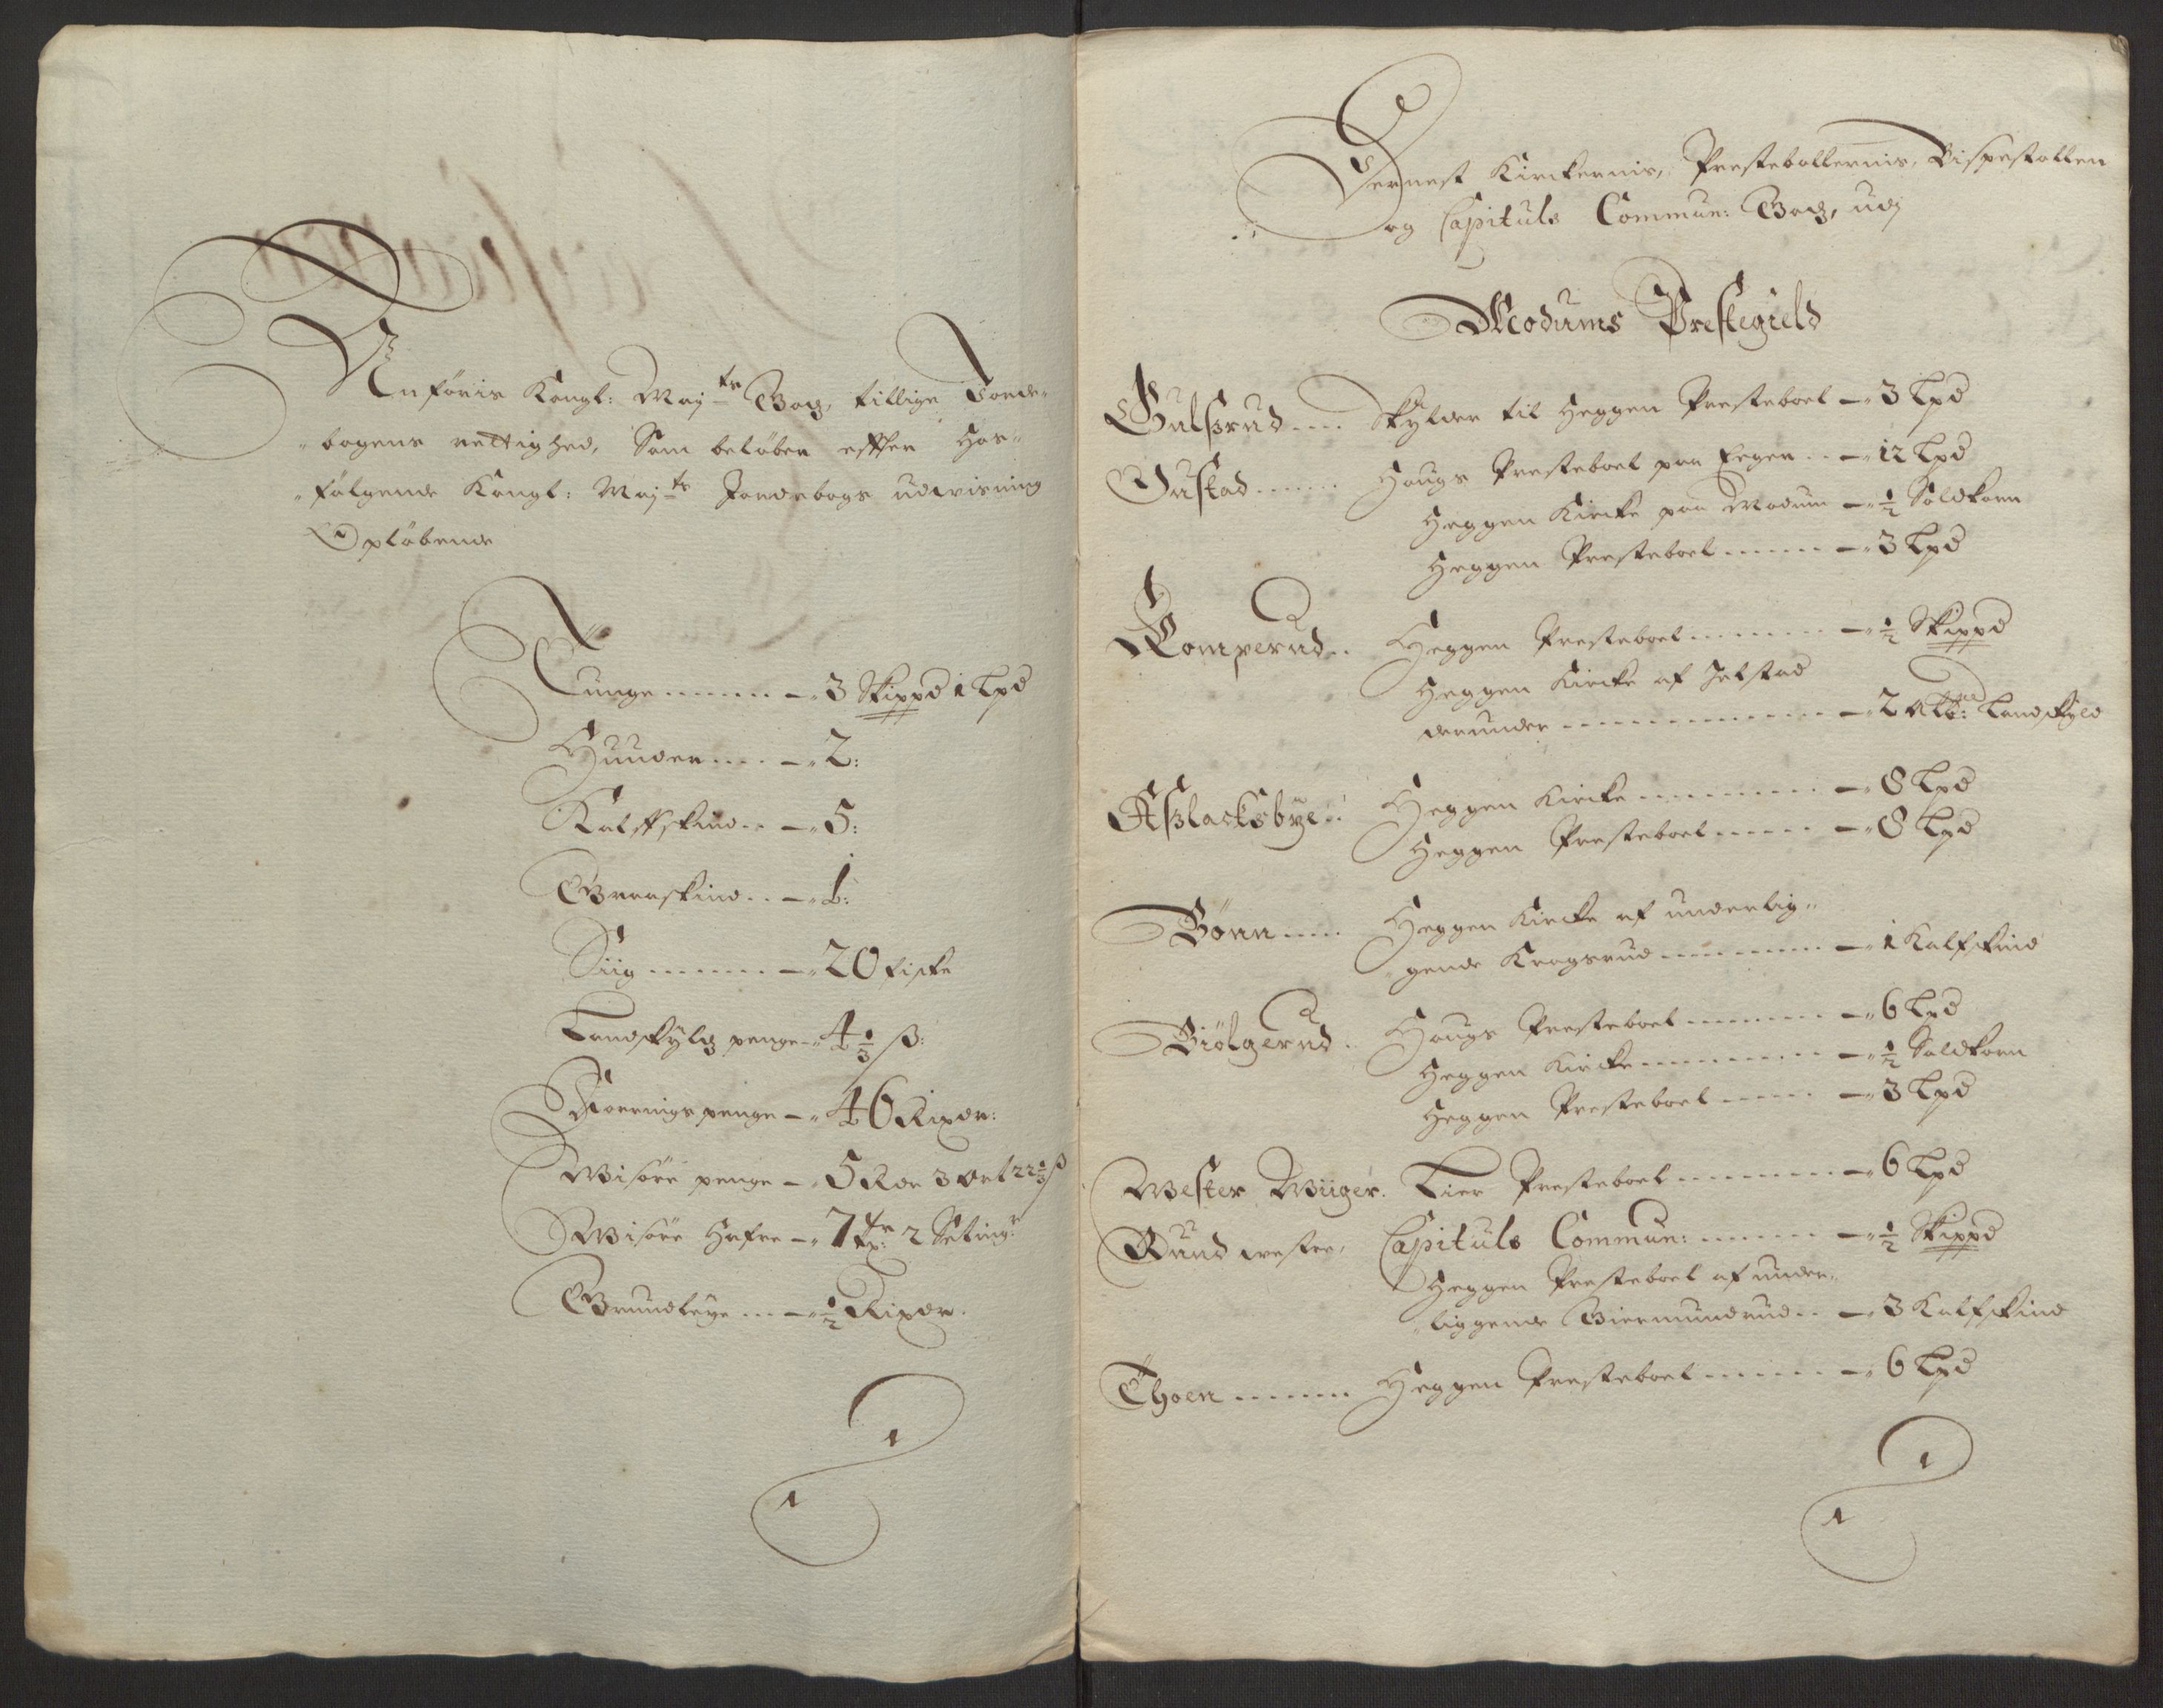 Anføris Kongl: May.ts Godz, tillige Jorde-
bogens rettighed, Som beløber effter Hos-
følgende Kongl: May.ts Jordebogs udvisning
Opløbende
Tunge ........ 3 Skippd 1 Lpd
Huuder .... 2:
Kalffskind .. 5:
Graaskind .. 1:
Siig ........ 20 fiske
Landskyld penge 4 1/3 ß:
Foernigs penge 46 Rixdr:
Wisøre penge 5 Rdr 3 Ort 22 1/3 ß
Wisøre Hafre 7 tr: 2 Setingr
Grundleye ... 1/2 Rixdr.
Dernest Kirckernis, Prestebollernis, Bispestollen
og Capituls Commun: Godz, udj
Modums Prestegield
Gulsrud .... Skylder til Heggen Presteboel 3 Lpd
Gustad ...... Hougs Presteboel paa Eeger .. 12 Lpd
Heggen Kircke paa Modum 1/2 Soldkorn
Heggen Presteboel ....... 3 Lpd
Komperud .. Heggen Presteboel ....... 1/2 Skippd
Heggen Kircke af Jelstad
derunder ............ 2 Landskyld
Aslacksbye .. Heggen Kircke ........ 8 Lpd
Heggen Presteboel ...... 8 Lpd
Bønn ..... Heggen Kircke af underlig-
gende Kragsrud ........ 1 Kalfskind
Biølgerud . Hougs Presteboel ....... 6 Lpd
Heggen Kircke ......... 1/2 Soldkorn
Heggen Presteboel ..... 3 Lpd
Wester Wiiger. Lier Presteboel ........ 6 Lpd
Rund wester, Capituls Commun: ...... 1/2 Skippd
Heggen Presteboel af under-
liggende Biermundrud .. 3 Kalfskind
Thoen ....... Heggen Presteboel ...... 6 Lpd